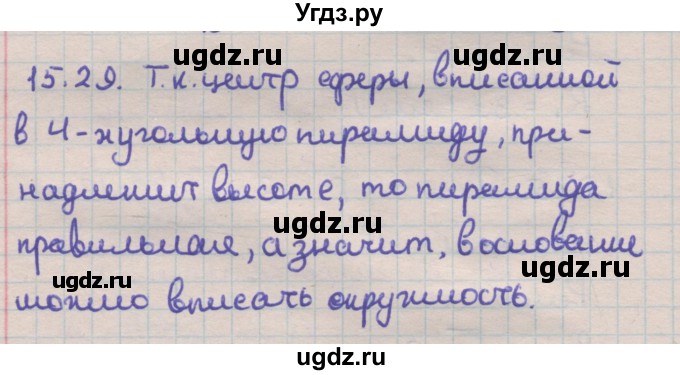 Угдз.ру
ugdz.ru ugdz.ru
15.29. Т.к. центр сферы, вписанной
в 4-хугольную пирамиду, при-
ugdz.ru
надлежит высоте, то пирамида
ugdz.ru
правильная, а значит, в основание
ugdz.ru
можно вписать окружность.
ugdz.ru
ugdz.ru